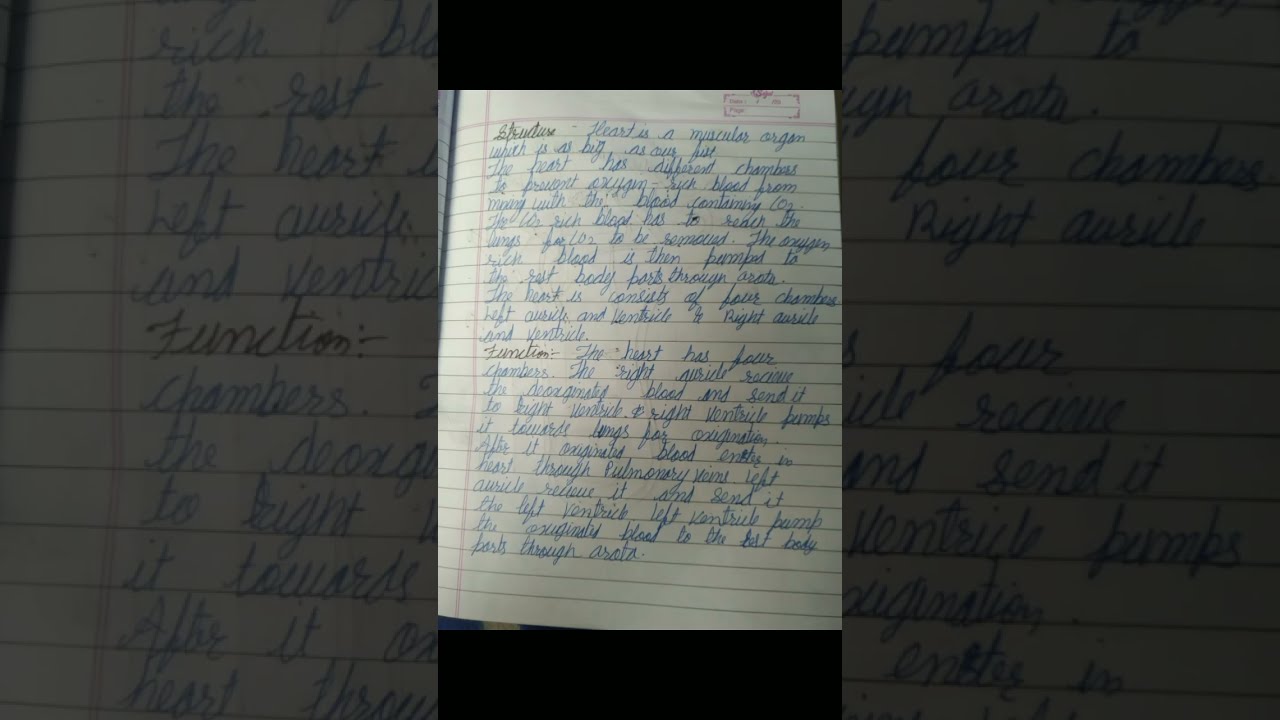 Date: / /20
Page:
Structure - Heart is a muscular organ
which is as big as our fist
The heart has different chambers
to prevent oxygen-rich blood from
mixing with the blood containing CO2.
The CO2 rich blood has to reach the
lungs for CO2 to be removed. The oxygen
rich blood is then pumped to
the rest body parts through arota.
The heart is consists of four chambers
Left auricle, and Ventricle & Right auricle
and ventricle.
Function:- The heart has four
chambers. The right auricle recieve
the deoxginated blood and send it
to right ventricle & right ventricle pumps
it towards lungs for oxigination.
After it oxiginated blood enter in
heart through Pulmonary Veins left
auricle recieve it and send it
the left ventricle, left ventricle pump
the oxiginated blood to the rest body
parts through arota.